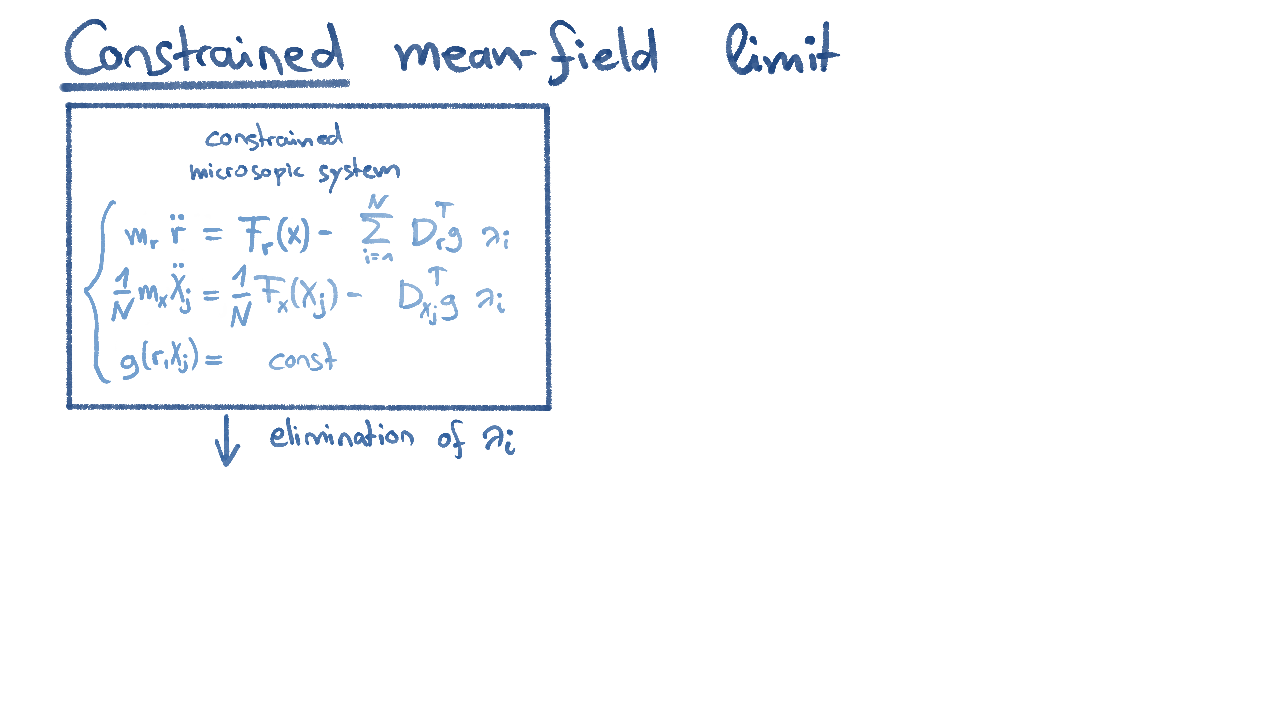 Constrained mean-field limit
constrained
microsopic system
m_r r̈ = F_r(x) - Σ_{i=1}^{N} D_r^T g λ_i
1/N m_x Ẍ_j = 1/N F_x(X_j) - D_{x_j}^T g λ_i
g(r, X_j) = const
↓ elimination of λ_i